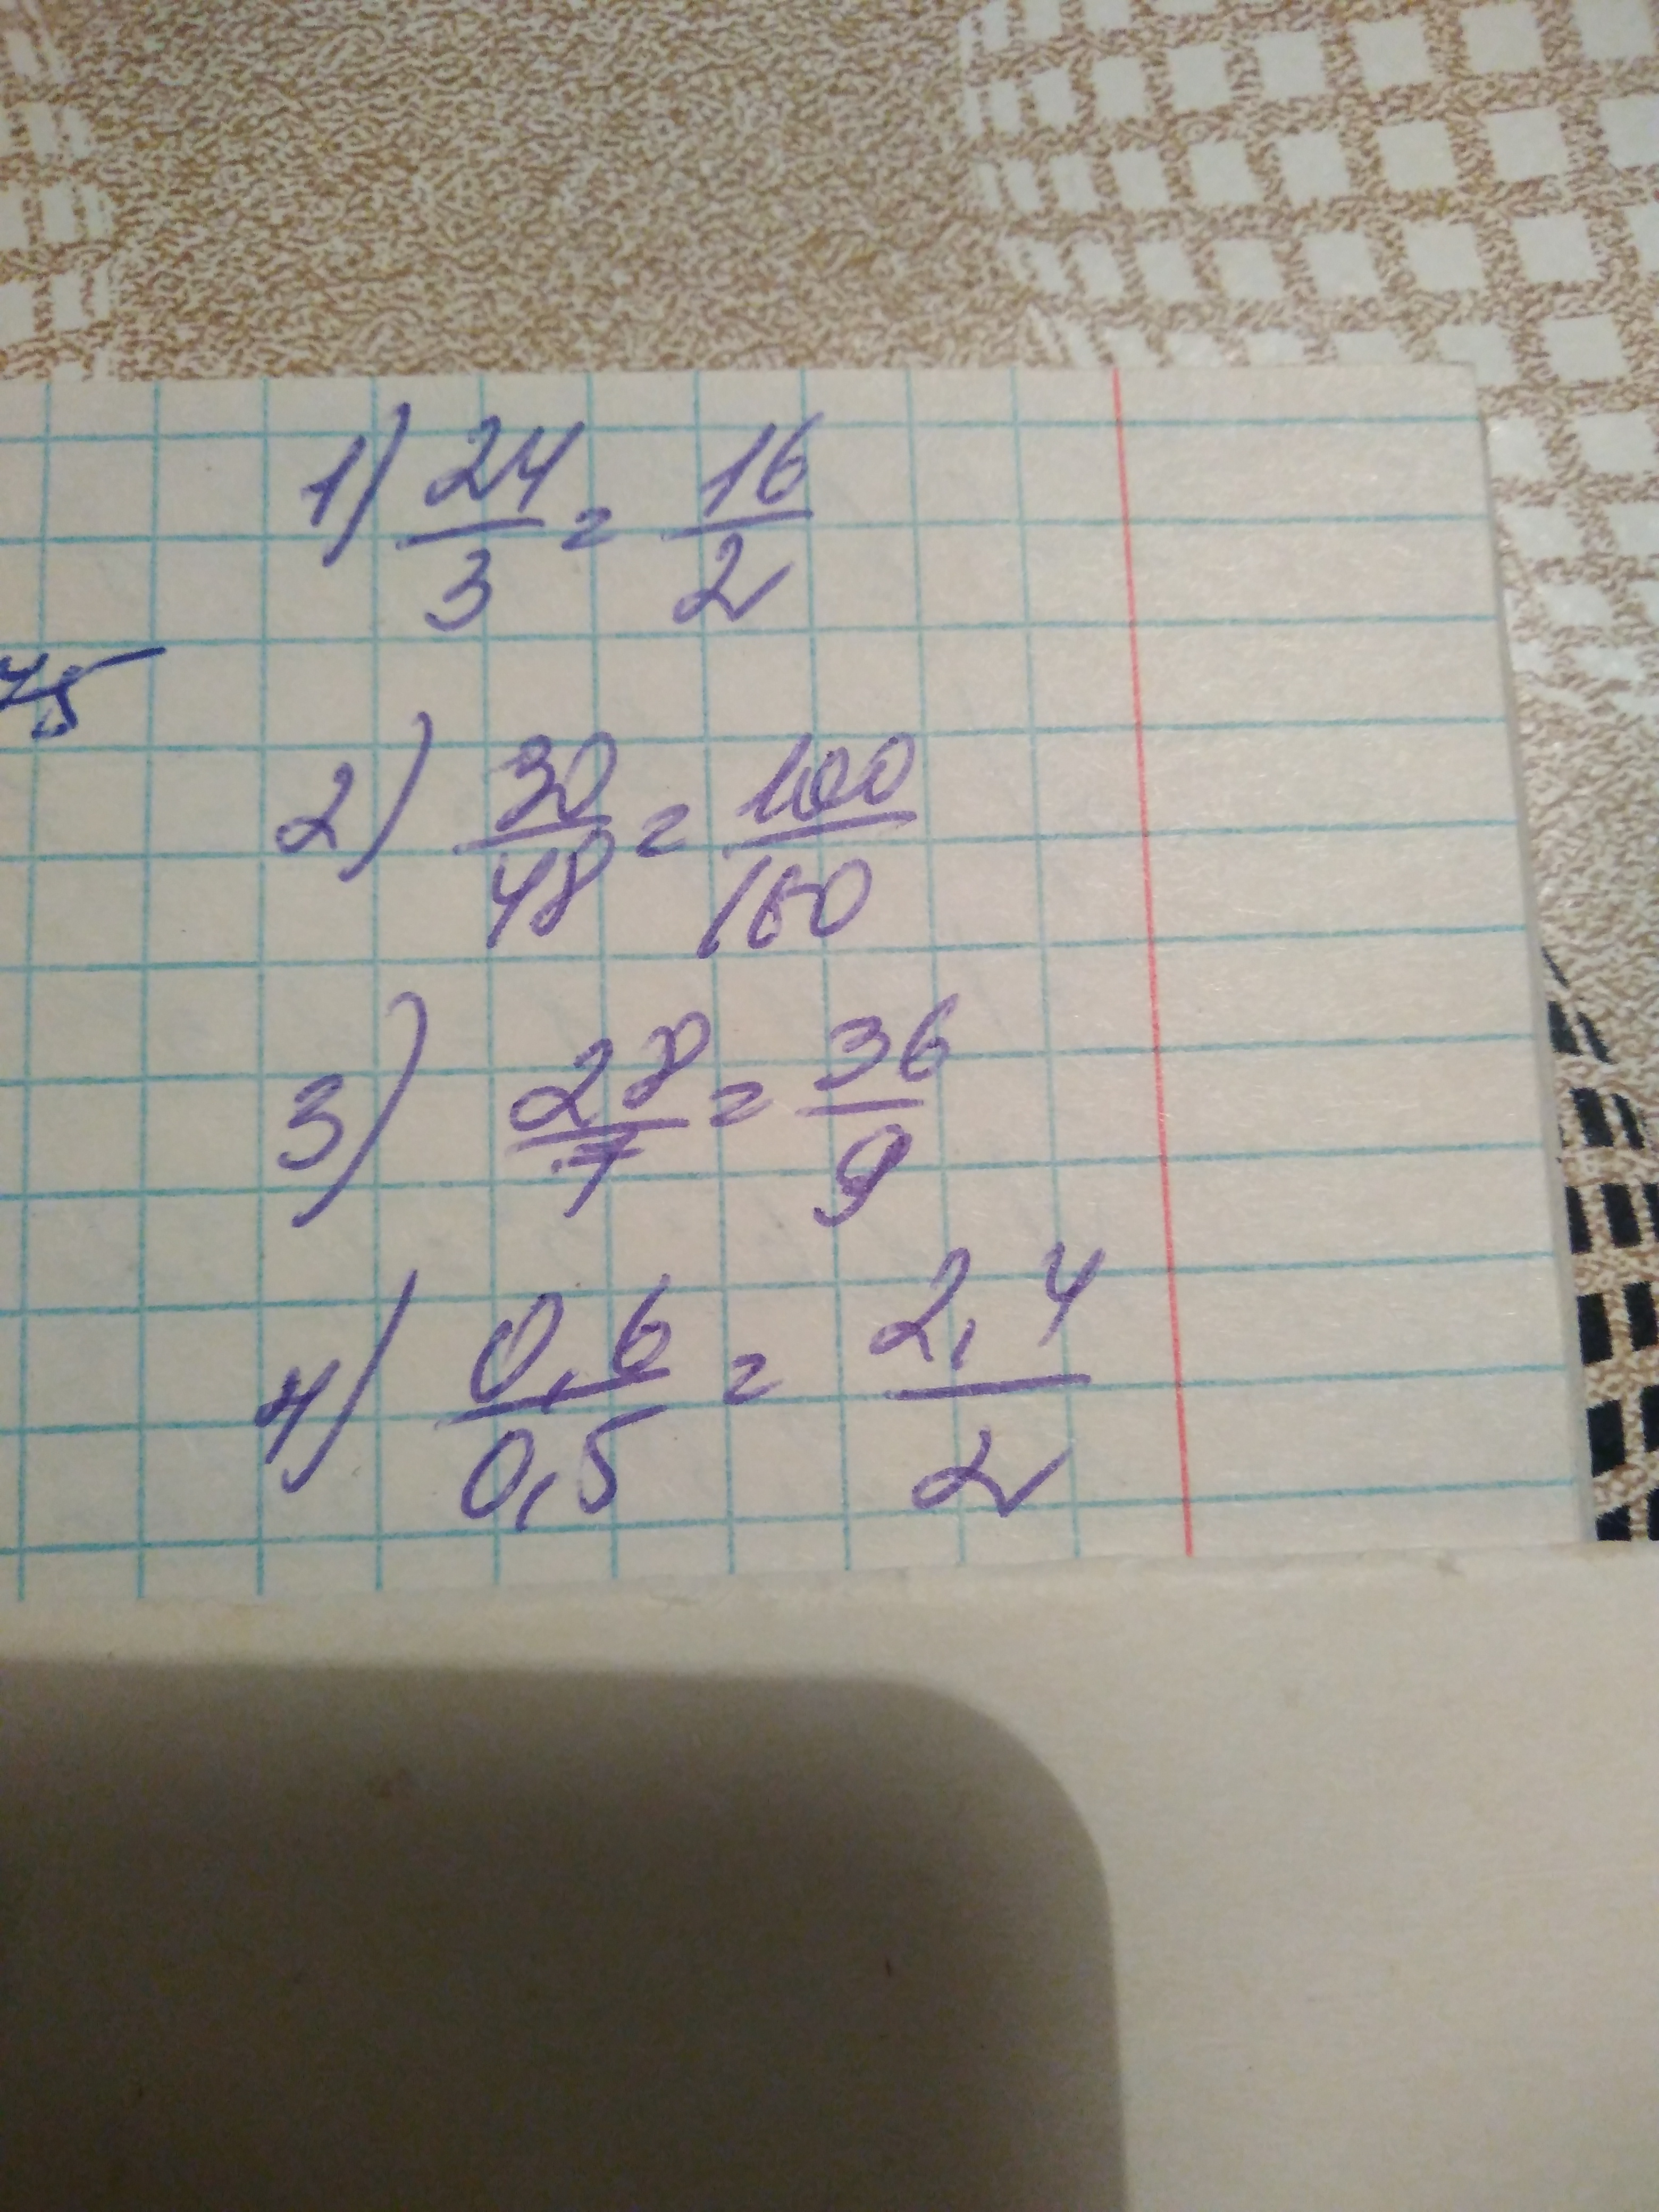 1) 24/3 = 16/2
75
2) 30/48 = 100/160
3) 28/7 = 36/9
4) 0,6/0,5 = 2,4/2